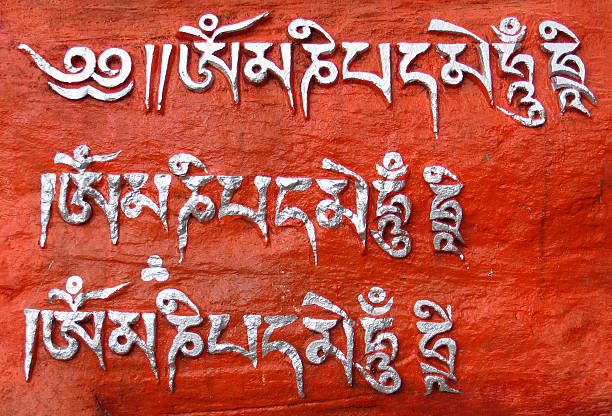 ༄༅།།ཨོཾ་མ་ཎི་པདམེ་ཧཱུྃ་ཧྲི
།ཨོཾ་མ་ཎི་པདམེ་ཧཱུྃ་ཧྲི
།ཨོཾ་མ་ཎི་པདམེ་ཧཱུྃ་ཧྲི